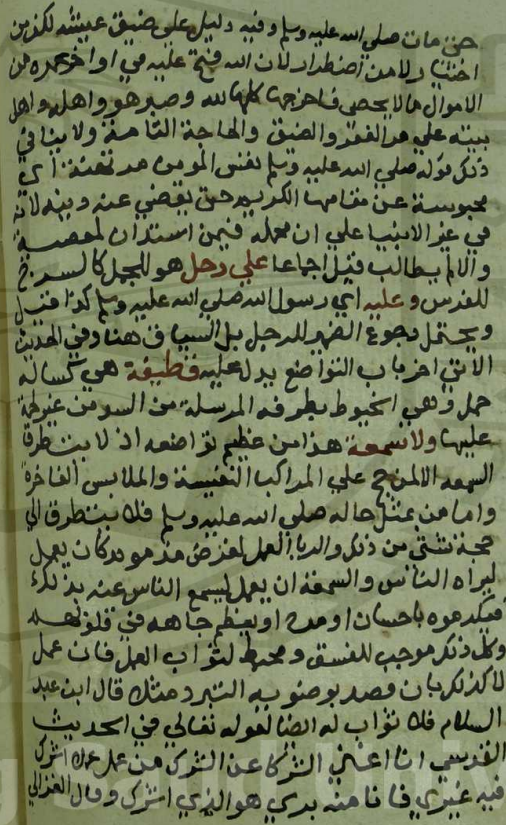 حتى مات صلي الله عليه وسلم وفيه دليل على ضيق عيشه لكن عن
اختيار لا من اضطرار لان الله فتح عليه في اواخر عمره من
الاموال ما لا يحصى فاخرجها كلها لله وصبر هو واهله واهل
بيته علي مر الفقر والضيق والحاجة التامة ولا ينافي
ذلك قوله صلي الله عليه وسلم نفس المومن مرتهنة اي
محبوسة عن مقامها الكريم حتى يقضي عنه دينه لانه
في غير الانبيا علي ان محمله فيمن استدان لمعصية
والا لم يطالب قيل اجماعا علي رحل هو للجمل كالسرج
للفرس وعليه اي رسول الله صلي الله عليه وسلم كذا قيل
ويحتمل رجوع الضمير للرحل بل السياق هنا وفي الحديث
الاتي اخر باب التواضع يدل عليه قطيفة هي كساله
خمل وهي الخيوط بطرفه المرسلة من السدى من غير لحمة
عليها ولا سمعة هذا من عظيم تواضعه اذ لا يتطرق
السمعة الا لمن حج علي المراكب النفيسة والملابس الفاخرة
واما من بمثل حاله صلي الله عليه وسلم فلا يتطرق الي
حجه شئ من ذلك والريا العمل لغرض مذموم كان يعمل
ليراه الناس والسمعة ان يعمل ليسمع الناس عنه بذلك
فيكرموه باحسان او مدح او يعظم جاهه في قلوبهم
وكل ذلك موجب للفسق ومحبط لثواب العمل فان عمل
لا كذلك بان قصد بوضوئه التبرد مثلا قال ابن عبد
السلام فلا ثواب له ايضا لقوله تعالي في الحديث
القدسي انا اغني الشركا عن الشرك من عمل عملا اشرك
فيه غيري فانا منه بري هو للذي اشرك وقال الغزالي